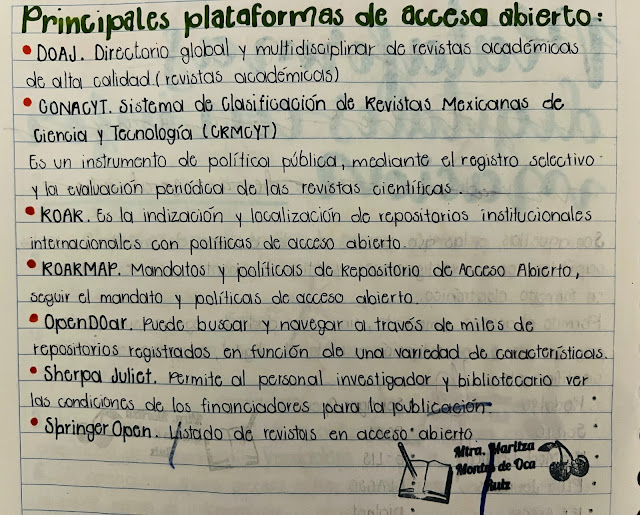 Principales plataformas de acceso abierto:
• DOAJ. Directorio global y multidisciplinar de revistas académicas
de alta calidad (revistas académicas)
• CONACYT. Sistema de Clasificación de Revistas Mexicanas de
Ciencia y Tecnología (CRMCYT)
Es un instrumento de política pública, mediante el registro selectivo
y la evaluación periódica de las revistas científicas.
• ROAR. Es la indización y localización de repositorios institucionales
internacionales con políticas de acceso abierto.
• ROARMAP. Mandatos y políticas de Repositorio de Acceso Abierto,
seguir el mandato y políticas de acceso abierto.
• OpenDOar. Puede buscar y navegar a través de miles de
repositorios registrados en función de una variedad de características.
• Sherpa Juliet. Permite al personal investigador y bibliotecario ver
las condiciones de los financiadores para la publicación.
• SpringerOpen. Listado de revistas en acceso abierto
Mtra. Maritza
Montes de Oca
Ruiz